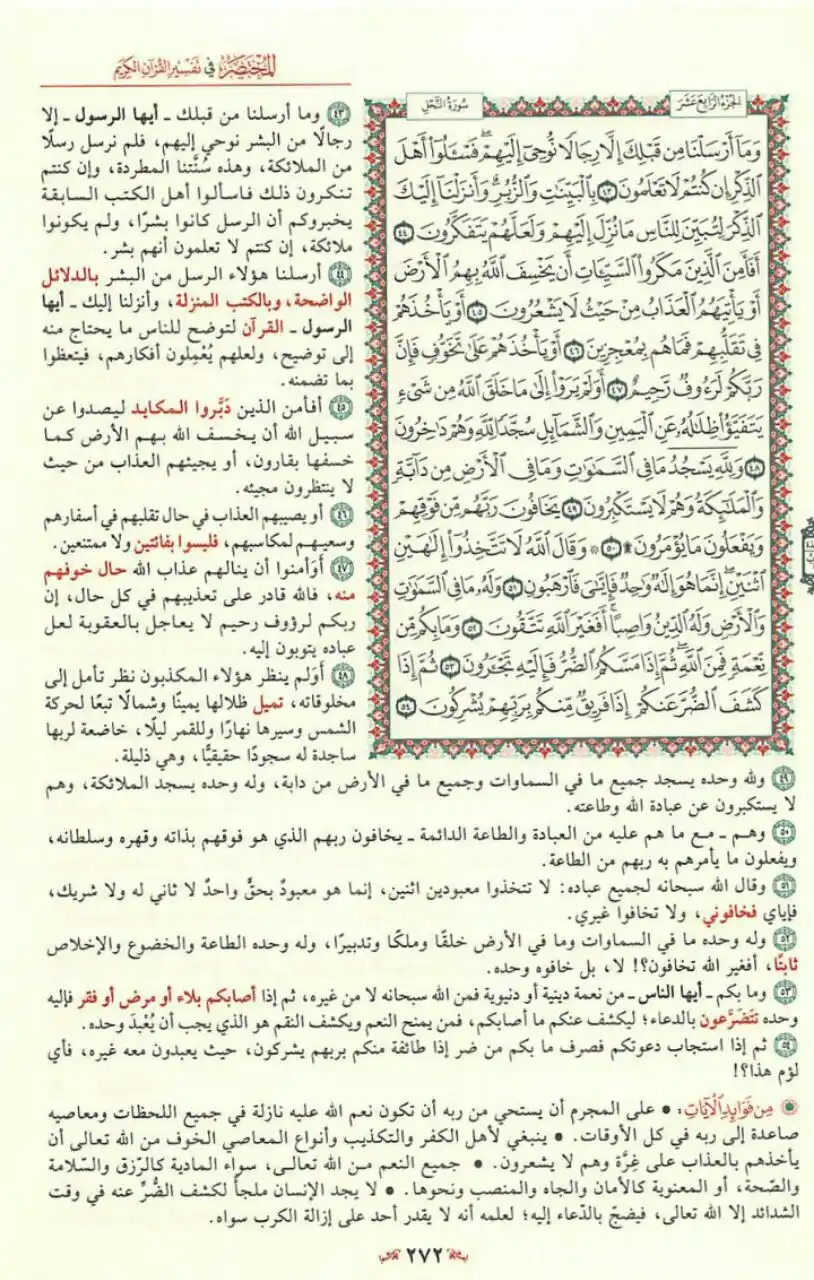 المختصر في تفسير القرآن الكريم
الجزء الرابع عشر
سورة النحل
وَمَآ أَرْسَلْنَا مِن قَبْلِكَ إِلَّا رِجَالًا نُّوحِىٓ إِلَيْهِمْ ۖ فَسْـَٔلُوٓا۟ أَهْلَ
ٱلذِّكْرِ إِن كُنتُمْ لَا تَعْلَمُونَ ٤٣ بِٱلْبَيِّنَـٰتِ وَٱلزُّبُرِ ۗ وَأَنزَلْنَآ إِلَيْكَ
ٱلذِّكْرَ لِتُبَيِّنَ لِلنَّاسِ مَا نُزِّلَ إِلَيْهِمْ وَلَعَلَّهُمْ يَتَفَكَّرُونَ ٤٤
أَفَأَمِنَ ٱلَّذِينَ مَكَرُوا۟ ٱلسَّيِّـَٔاتِ أَن يَخْسِفَ ٱللَّهُ بِهِمُ ٱلْأَرْضَ
أَوْ يَأْتِيَهُمُ ٱلْعَذَابُ مِنْ حَيْثُ لَا يَشْعُرُونَ ٤٥ أَوْ يَأْخُذَهُمْ
فِى تَقَلُّبِهِمْ فَمَا هُم بِمُعْجِزِينَ ٤٦ أَوْ يَأْخُذَهُمْ عَلَىٰ تَخَوُّفٍ فَإِنَّ
رَبَّكُمْ لَرَءُوفٌ رَّحِيمٌ ٤٧ أَوَلَمْ يَرَوْا۟ إِلَىٰ مَا خَلَقَ ٱللَّهُ مِن شَىْءٍ
يَتَفَيَّؤُا۟ ظِلَـٰلُهُۥ عَنِ ٱلْيَمِينِ وَٱلشَّمَآئِلِ سُجَّدًا لِّلَّهِ وَهُمْ دَٰخِرُونَ
٤٨ وَلِلَّهِ يَسْجُدُ مَا فِى ٱلسَّمَـٰوَٰتِ وَمَا فِى ٱلْأَرْضِ مِن دَآبَّةٍ
وَٱلْمَلَـٰٓئِكَةُ وَهُمْ لَا يَسْتَكْبِرُونَ ٤٩ يَخَافُونَ رَبَّهُم مِّن فَوْقِهِمْ
وَيَفْعَلُونَ مَا يُؤْمَرُونَ ۩ ٥٠ ۞ وَقَالَ ٱللَّهُ لَا تَتَّخِذُوٓا۟ إِلَـٰهَيْنِ
ٱثْنَيْنِ ۖ إِنَّمَا هُوَ إِلَـٰهٌ وَٰحِدٌ ۖ فَإِيَّـٰىَ فَٱرْهَبُونِ ٥١ وَلَهُۥ مَا فِى ٱلسَّمَـٰوَٰتِ
وَٱلْأَرْضِ وَلَهُ ٱلدِّينُ وَاصِبًا ۚ أَفَغَيْرَ ٱللَّهِ تَتَّقُونَ ٥٢ وَمَا بِكُم مِّن
نِّعْمَةٍ فَمِنَ ٱللَّهِ ۖ ثُمَّ إِذَا مَسَّكُمُ ٱلضُّرُّ فَإِلَيْهِ تَجْـَٔرُونَ ٥٣ ثُمَّ إِذَا
كَشَفَ ٱلضُّرَّ عَنكُمْ إِذَا فَرِيقٌ مِّنكُم بِرَبِّهِمْ يُشْرِكُونَ ٥٤
٤٣ وما أرسلنا من قبلك ـ أيها الرسول ـ إلا
رجالًا من البشر نوحي إليهم، فلم نرسل رسلًا
من الملائكة، وهذه سُنَّتنا المطردة، وإن كنتم
تنكرون ذلك فاسألوا أهل الكتب السابقة
يخبروكم أن الرسل كانوا بشرًا، ولم يكونوا
ملائكة، إن كنتم لا تعلمون أنهم بشر.
٤٤ أرسلنا هؤلاء الرسل من البشر بالدلائل
الواضحة، وبالكتب المنزلة، وأنزلنا إليك ـ أيها
الرسول ـ القرآن لتوضح للناس ما يحتاج منه
إلى توضيح، ولعلهم يُعْمِلون أفكارهم، فيتعظوا
بما تضمنه.
٤٥ أفأمن الذين دَبَّروا المكايد ليصدوا عن
سبيل الله أن يخسف الله بهم الأرض كما
خسفها بقارون، أو يجيئهم العذاب من حيث
لا ينتظرون مجيئه.
٤٦ أو يصيبهم العذاب في حال تقلبهم في أسفارهم
وسعيهم لمكاسبهم، فليسوا بفائتين ولا ممتنعين.
٤٧ أوَأمنوا أن ينالهم عذاب الله حال خوفهم
منه، فالله قادر على تعذيبهم في كل حال، إن
ربكم لرؤوف رحيم لا يعاجل بالعقوبة لعل
عباده يتوبون إليه.
٤٨ أَوَلم ينظر هؤلاء المكذبون نظر تأمل إلى
مخلوقاته، تميل ظلالها يمينًا وشمالًا تبعًا لحركة
الشمس وسيرها نهارًا وللقمر ليلًا، خاضعة لربها
ساجدة له سجودًا حقيقيًّا، وهي ذليلة.
٤٩ ولله وحده يسجد جميع ما في السماوات وجميع ما في الأرض من دابة، وله وحده يسجد الملائكة، وهم
لا يستكبرون عن عبادة الله وطاعته.
٥٠ وهـم ـ مـع ما هم عليه من العبادة والطاعة الدائمة ـ يخافون ربهم الذي هو فوقهم بذاته وقهره وسلطانه،
ويفعلون ما يأمرهم به ربهم من الطاعة.
٥١ وقال الله سبحانه لجميع عباده: لا تتخذوا معبودين اثنين، إنما هو معبودٌ بحقٍّ واحدٌ لا ثاني له ولا شريك،
فإياي فخافوني، ولا تخافوا غيري.
٥٢ وله وحده ما في السماوات وما في الأرض خلقًا وملكًا وتدبيرًا، وله وحده الطاعة والخضوع والإخلاص
ثابتًا، أفغير الله تخافون؟! لا، بل خافوه وحده.
٥٣ وما بكم ـ أيها الناس ـ من نعمة دينية أو دنيوية فمن الله سبحانه لا من غيره، ثم إذا أصابكم بلاء أو مرض أو فقر فإليه
وحده تتَضَرَّعون بالدعاء؛ ليكشف عنكم ما أصابكم، فمن يمنح النعم ويكشف النقم هو الذي يجب أن يُعْبدَ وحده.
٥٤ ثم إذا استجاب دعوتكم فصرف ما بكم من ضر إذا طائفة منكم بربهم يشركون، حيث يعبدون معه غيره، فأي
لؤم هذا؟!
من فوائد الآيات: • على المجرم أن يستحي من ربه أن تكون نعم الله عليه نازلة في جميع اللحظات ومعاصيه
صاعدة إلى ربه في كل الأوقات. • ينبغي لأهل الكفر والتكذيب وأنواع المعاصي الخوف من الله تعالى أن
يأخذهم بالعذاب على غِرَّة وهم لا يشعرون. • جميع النعم مـن الله تعالـى، سواء المادية كالرّزق والسّلامة
والصّحة، أو المعنوية كالأمان والجاه والمنصب ونحوها. • لا يجد الإنسان ملجأً لكشف الضُّرِّ عنه في وقت
الشدائد إلا الله تعالى، فيضجّ بالدّعاء إليه؛ لعلمه أنه لا يقدر أحد على إزالة الكرب سواه.
٢٧٢